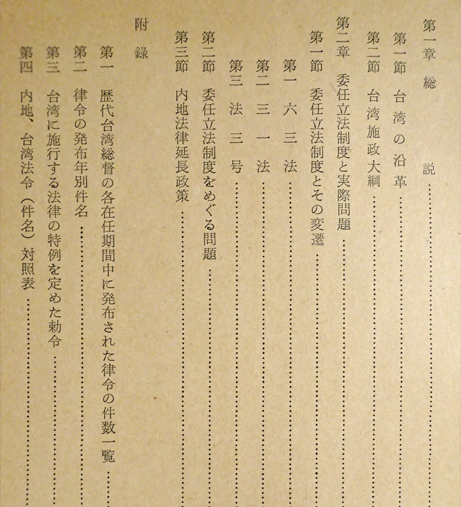 第一章 総説
第一節 台湾の沿革
第二節 台湾施政大綱
第二章 委任立法制度と実際問題
第一節 委任立法制度とその変遷
第一 六三法
第二 三一法
第三 法三号
第二節 委任立法制度をめぐる問題
第三節 内地法律延長政策
附録
第一 歴代台湾総督の各在任期間中に発布された律令の件数一覧
第二 律令の発布年別件名
第三 台湾に施行する法律の特例を定めた勅令
第四 内地、台湾法令（件名）対照表